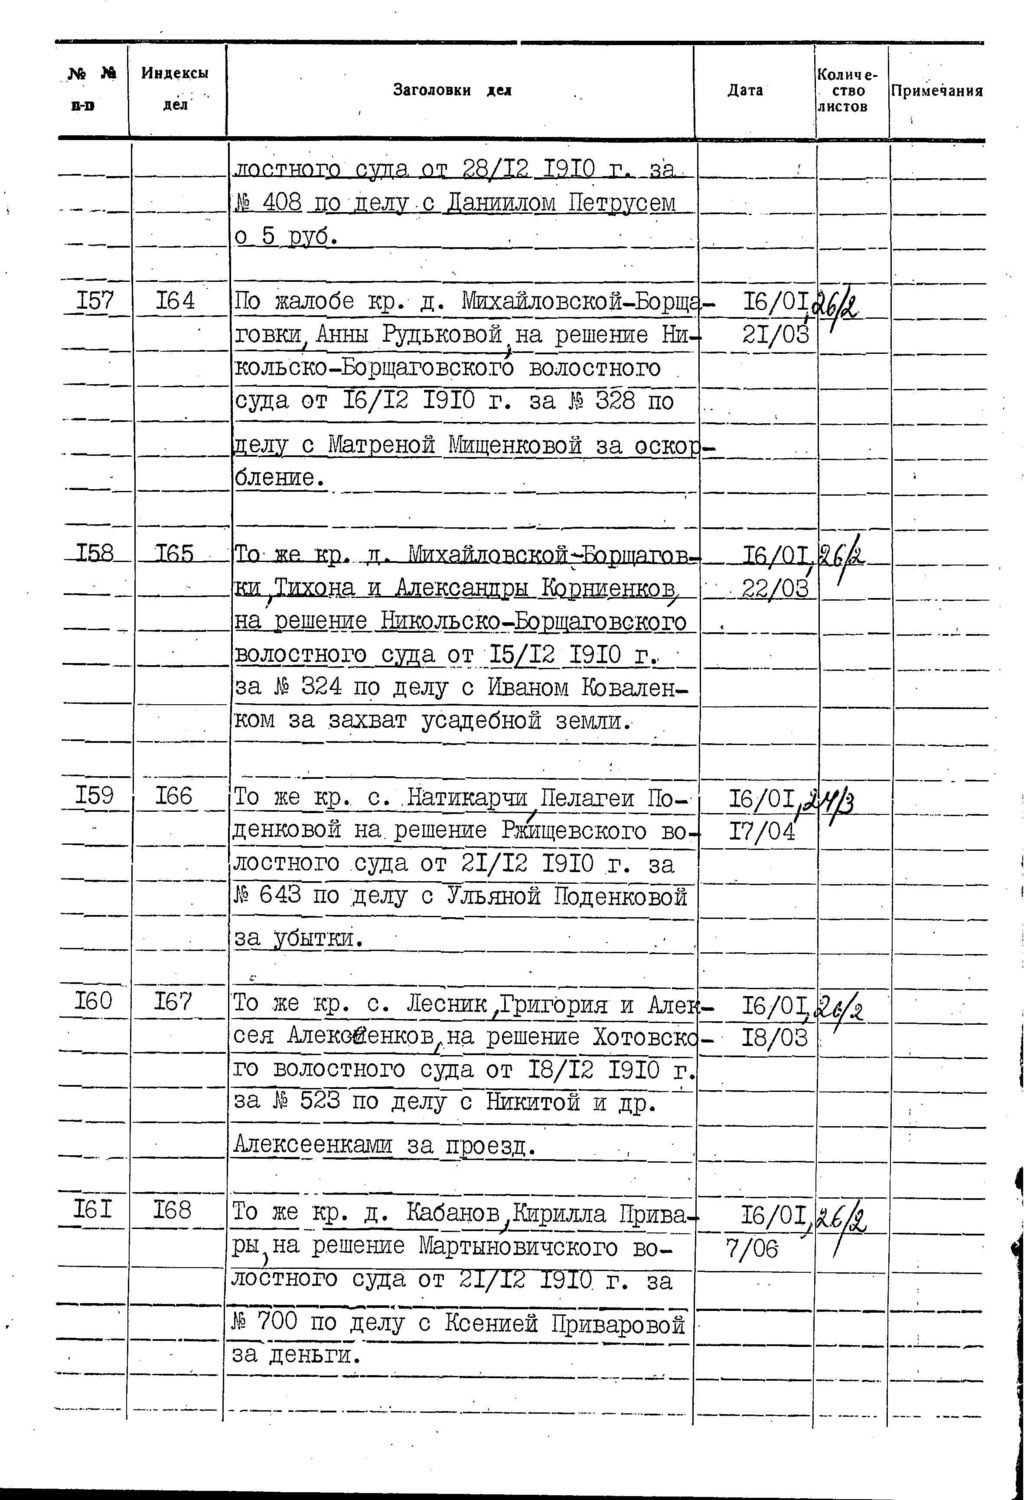 № № п-п | Индексы дел | Заголовки дел | Дата | Количество листов | Примечания
лостного суда от 28/12 1910 г. за
№ 408 по делу с Даниилом Петрусем
о 5 руб.
157 164 По жалобе кр. д. Михайловской-Борща- 16/01, 26/2
говки, Анны Рудьковой, на решение Ни- 21/03
кольско-Борщаговского волостного
суда от 16/12 1910 г. за № 328 по
делу с Матреной Мищенковой за оскор-
бление.
158 165 То же кр. д. Михайловской-Борщагов- 16/01, 26/2
ки, Тихона и Александры Корниенков, 22/03
на решение Никольско-Борщаговского
волостного суда от 15/12 1910 г.
за № 324 по делу с Иваном Ковален-
ком за захват усадебной земли.
159 166 То же кр. с. Натикарчи, Пелагеи По- 16/01, 24/3
денковой на решение Ржищевского во- 17/04
лостного суда от 21/12 1910 г. за
№ 643 по делу с Ульяной Поденковой
за убытки.
160 167 То же кр. с. Лесник, Григория и Алек- 16/01, 26/2
сея Алексеенков, на решение Хотовско- 18/03
го волостного суда от 18/12 1910 г.
за № 523 по делу с Никитой и др.
Алексеенками за проезд.
161 168 То же кр. д. Кабанов, Кирилла Прива- 16/01, 26/2
ры, на решение Мартыновичского во- 7/06
лостного суда от 21/12 1910 г. за
№ 700 по делу с Ксенией Приваровой
за деньги.